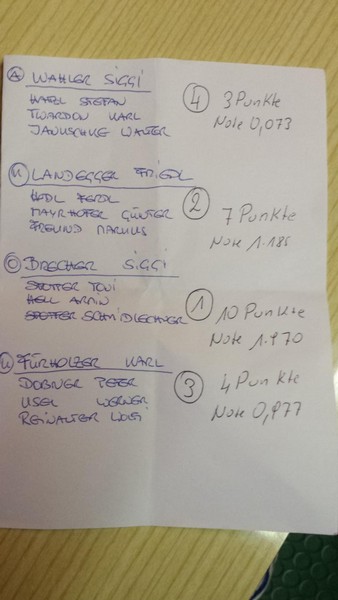 A WAHLER SIGGI
HATZL STEFAN
TWARDON KARL
JANUSCHKE WALTER
4 3 Punkte
Note 0,073
M LANDEGGER FRIEDL
HÖDL FERDL
MAYRHOFER GÜNTER
FREUND MARKUS
2 7 Punkte
Note 1.185
O BRECHER SIGGI
TONI
HELL ARMIN
SCHMIDLECHNER
1 10 Punkte
Note 1.970
U FÜRHOLZER KARL
DORNER PETER
USEL WERNER
REINALTER WOLFI
3 4 Punkte
Note 0,977